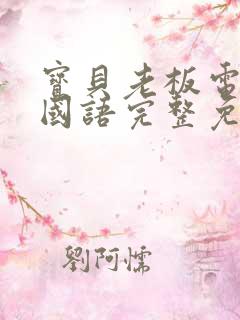 寶貝老板電
國語完整免
劉阿懦